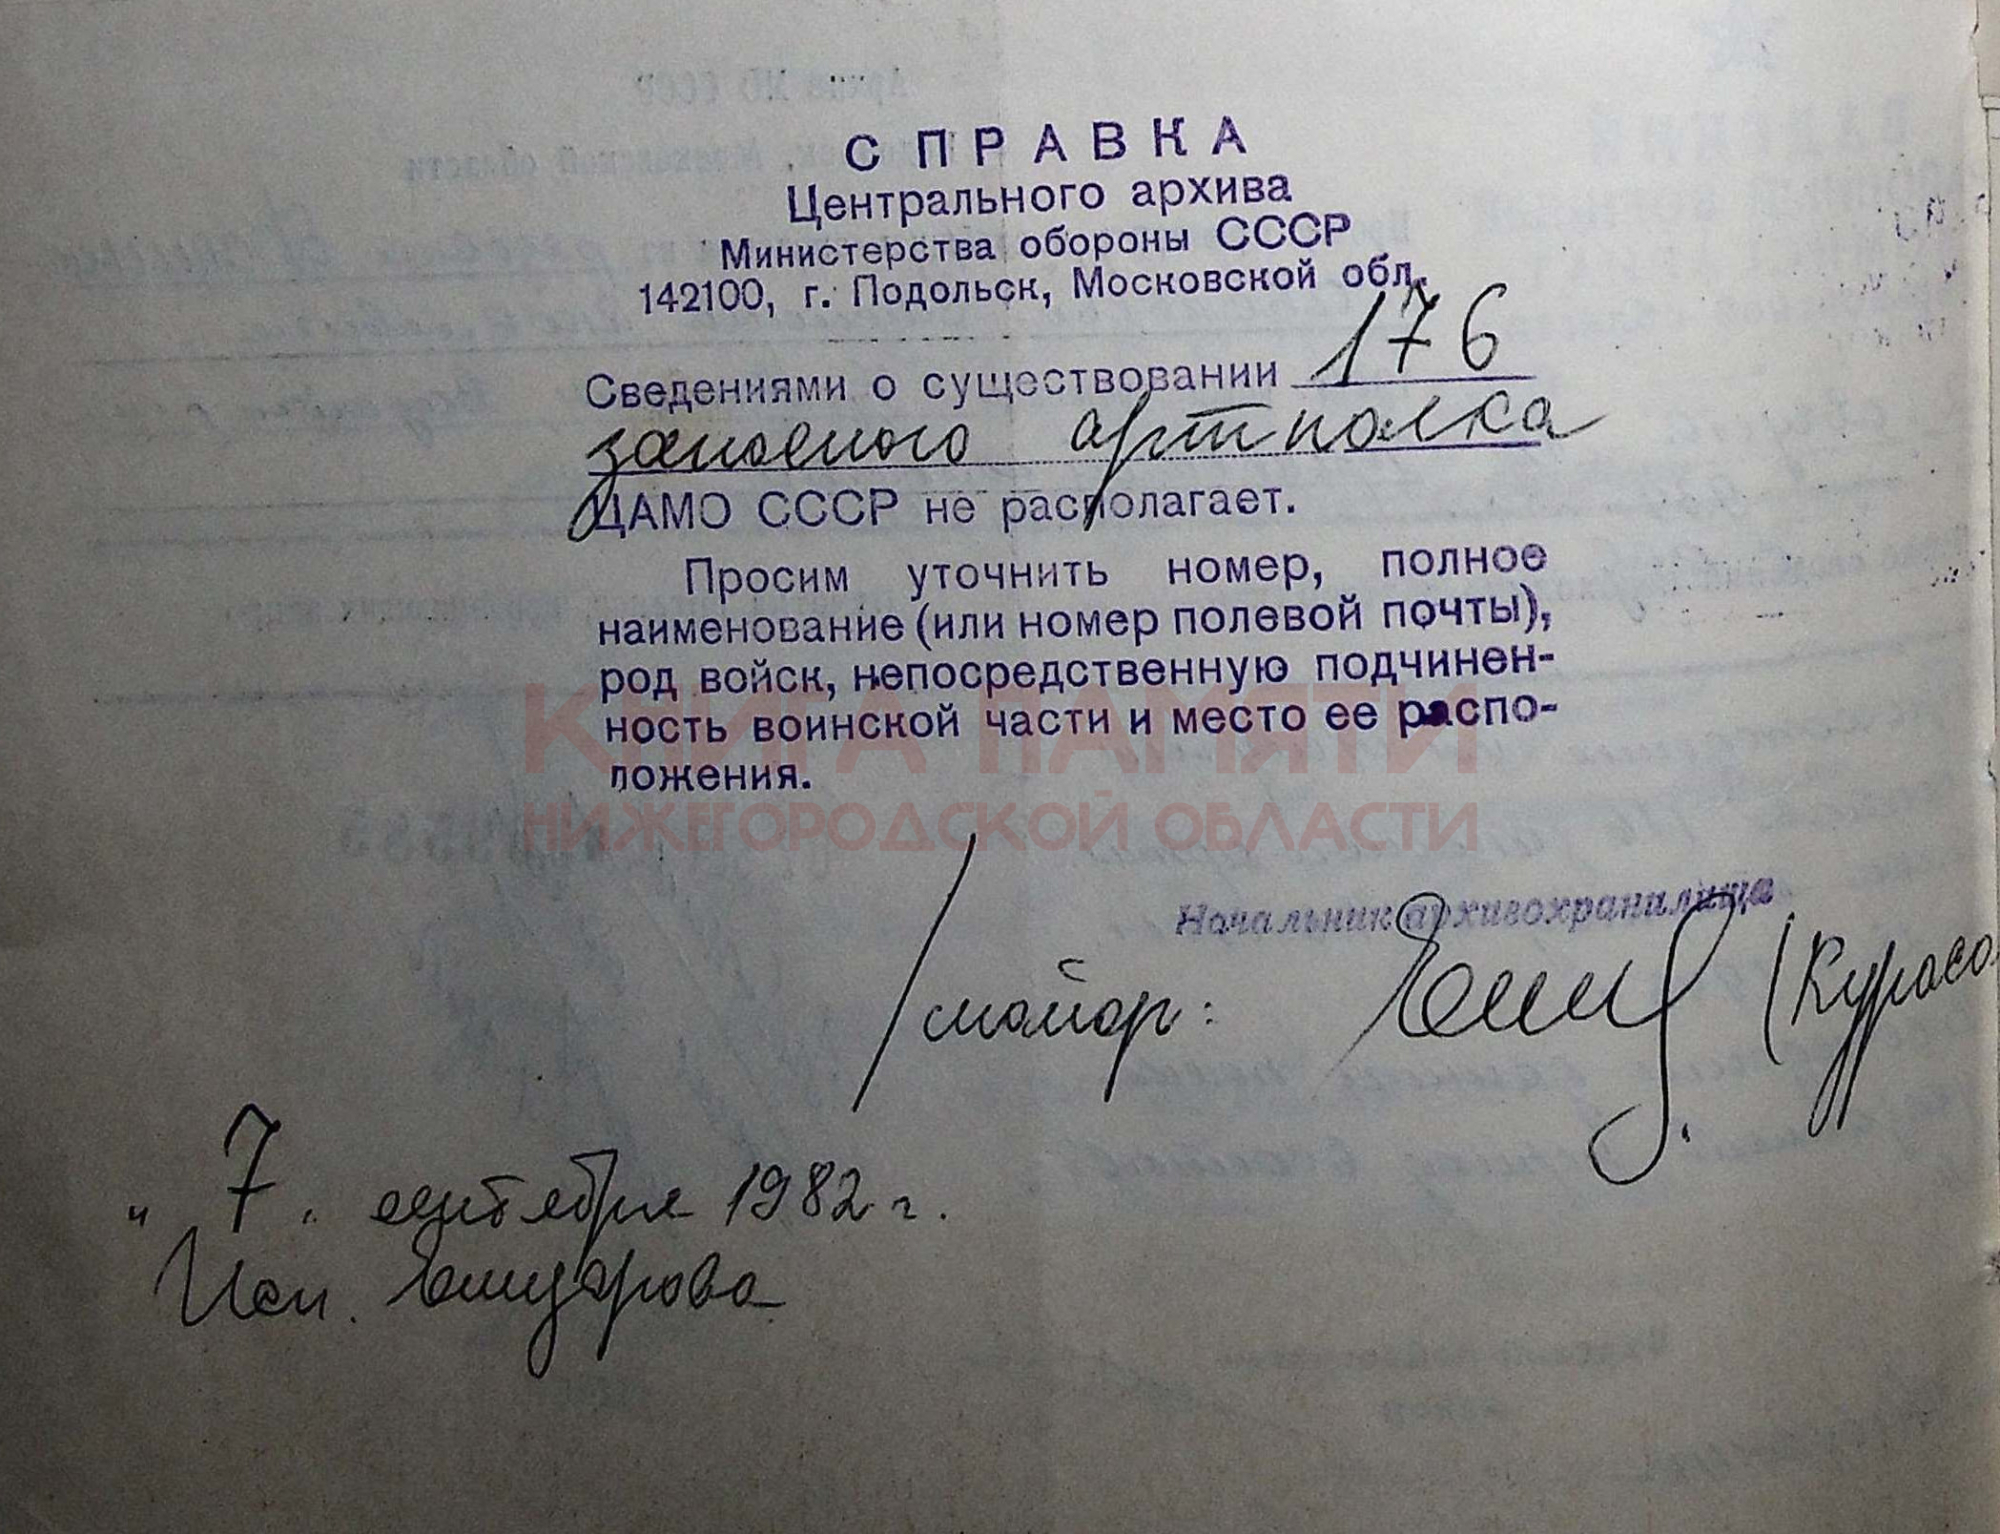 СПРАВКА
Центрального архива
Министерства обороны СССР
142100, г. Подольск, Московской обл.
Сведениями о существовании 176
запасного артполка
ЦАМО СССР не располагает.
Просим уточнить номер, полное
наименование (или номер полевой почты),
род войск, непосредственную подчинен-
ность воинской части и место ее распо-
ложения.
КНИГА ПАМЯТИ
НИЖЕГОРОДСКОЙ ОБЛАСТИ
Начальник архивохранилища
/майор: (Курасо
"7" сентября 1982 г.
Исп.